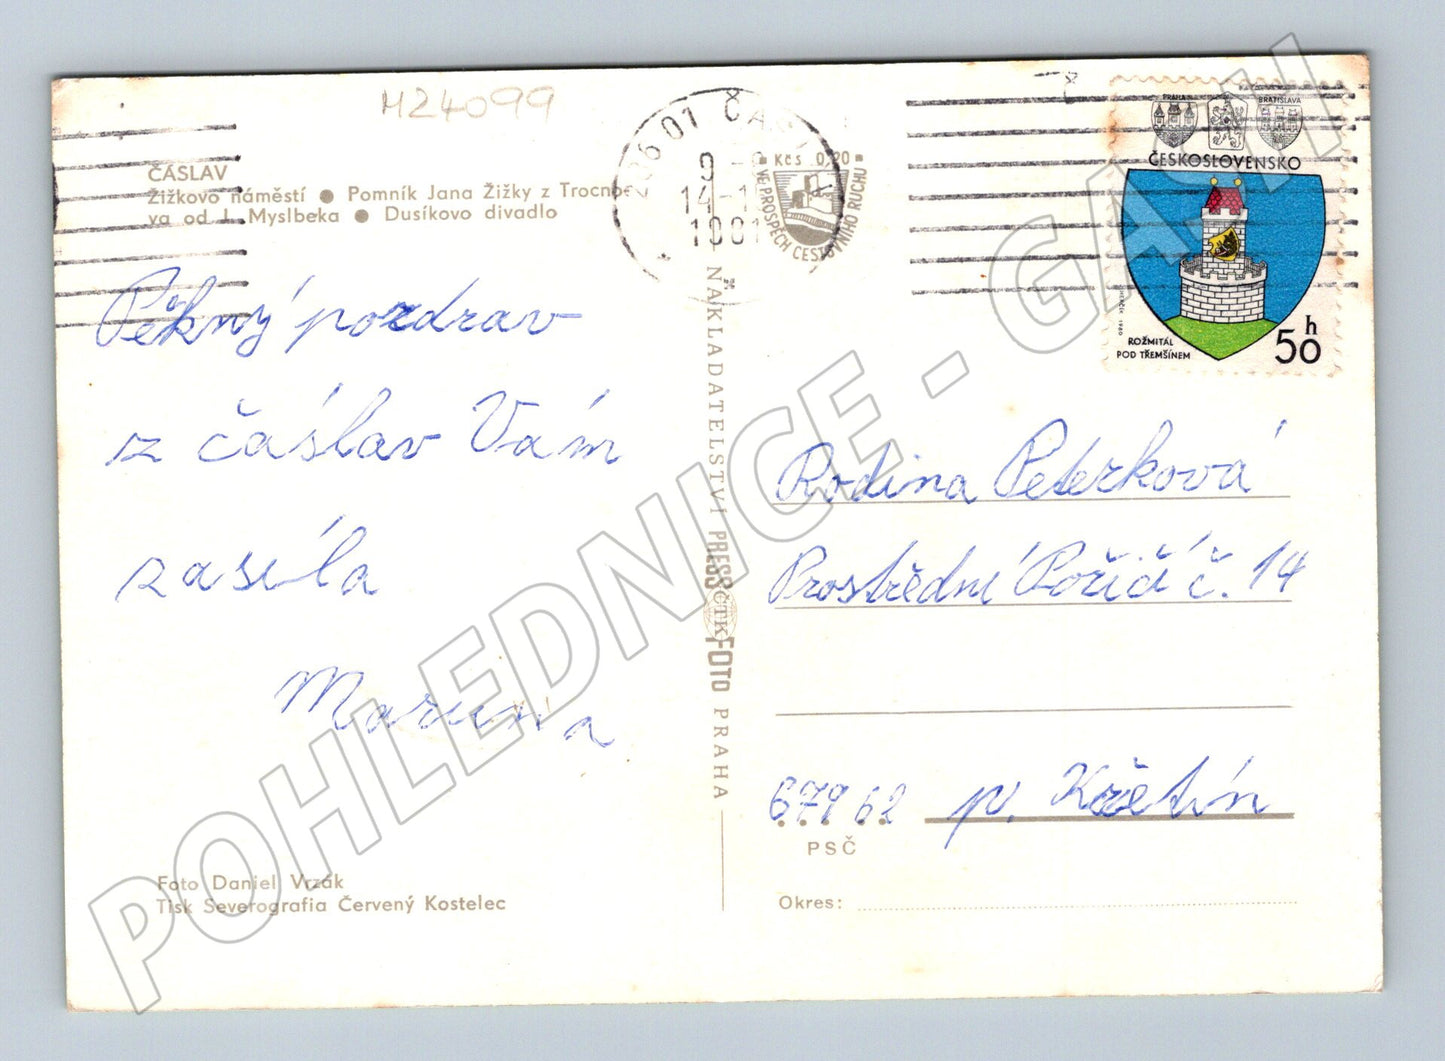 M24099
ČÁSLAV
Žižkovo náměstí ● Pomník Jana Žižky z Trocno
va od J. Myslbeka ● Dusíkovo divadlo
286 01 ČÁS
9
14-1
1981
Kčs 0,20
VE PROSPĚCH CESTOVNÍHO RUCHU
PRAHA
BRATISLAVA
ČESKOSLOVENSKO
ROŽMITÁL
POD TŘEMŠÍNEM
50 h
Pěkný pozdrav
z čáslav Vám
zasíla
Maruna
NAKLADATELSTVÍ PRESSFOTO PRAHA
ČTK
Rodina Peterková
Prostřední Poříčí č. 14
679 62 p. Křetín
PSČ
Okres:
Foto Daniel Vrzák
Tisk Severografia Červený Kostelec
POHLEDNICE - GACH